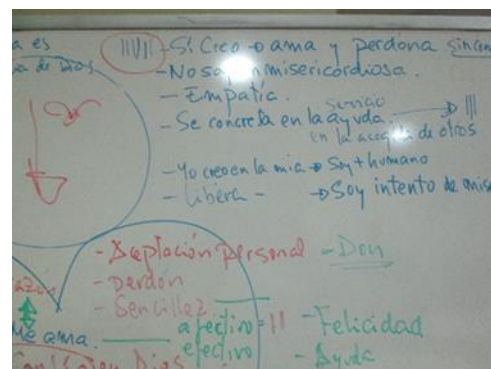 a es
a de Dios
- Si Creo → ama y perdona sincen
- No soy misericordiosa.
- Empatía.
Servicio
- Se concreta en la ayuda.
en la acogida de otros
- Yo creo en la mia → Soy + humano
- libera - → Soy intento de mise
- Aceptación personal - Don
- Perdón
- Sencillez
me ama. afectivo - Felicidad
efectivo - Ayuda
Dios